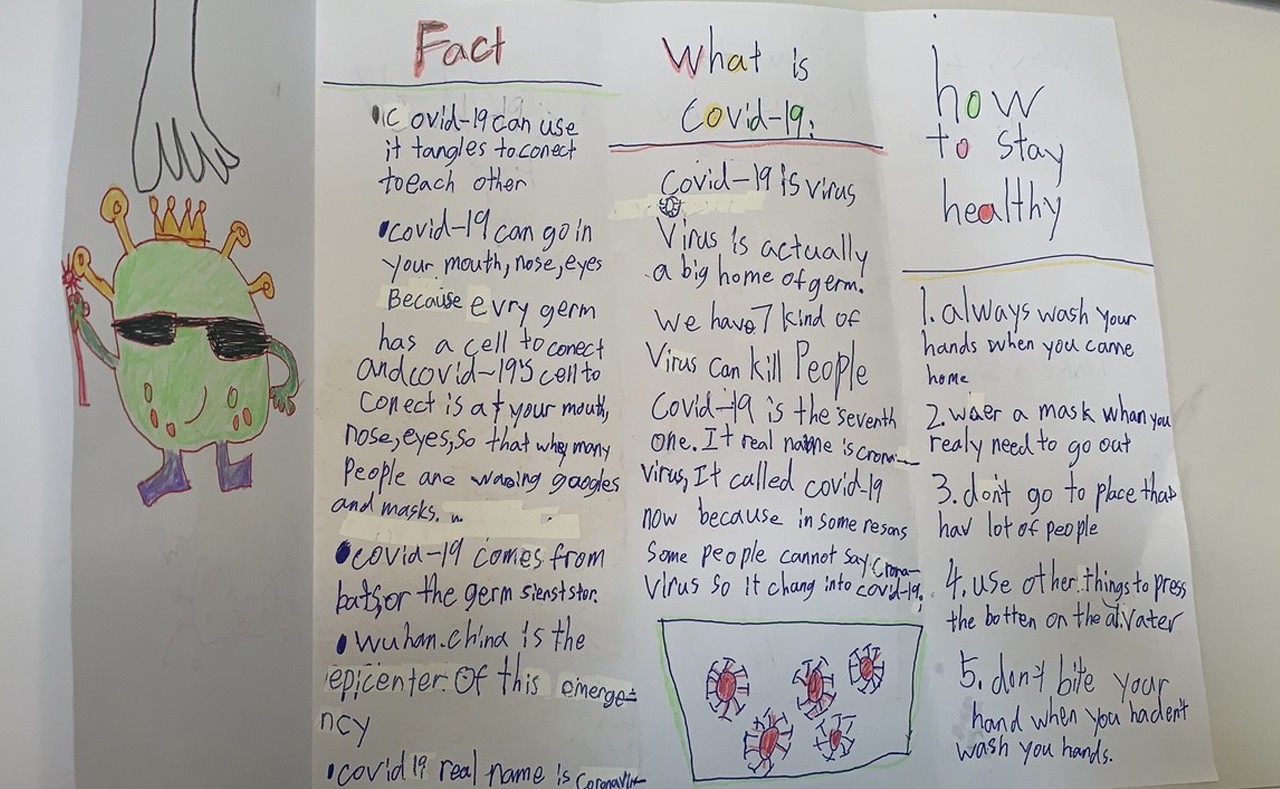 Fact
• Covid-19 can use
it tangles to conect
to each other
• covid-19 can go in
your mouth, nose, eyes
Because evry germ
has a cell to conect
and covid-19's cell to
conect is at your mouth,
nose, eyes, so that whey many
People are waeing gaogles
and masks.
• covid-19 comes from
bats, or the germ sienststor.
• wuhan. china is the
epicenter of this emerge-
ncy
• covid 19 real name is coronavirus
What is
Covid-19:
Covid-19 is virus
Virus is actually
a big home of germ.
We have 7 kind of
Virus can kill People
Covid-19 is the seventh
one. It real name is crona-
virus, It called covid-19
now because in some resons
Some people cannot say crona-
virus so it chang into covid-19.
how
to stay
healthy
1. always wash your
hands when you came
home
2. waer a mask whan you
realy need to go out
3. don't go to place that
hav lot of people
4. use other things to press
the botten on the alivater
5. don't bite your
hand when you haden't
wash you hands.